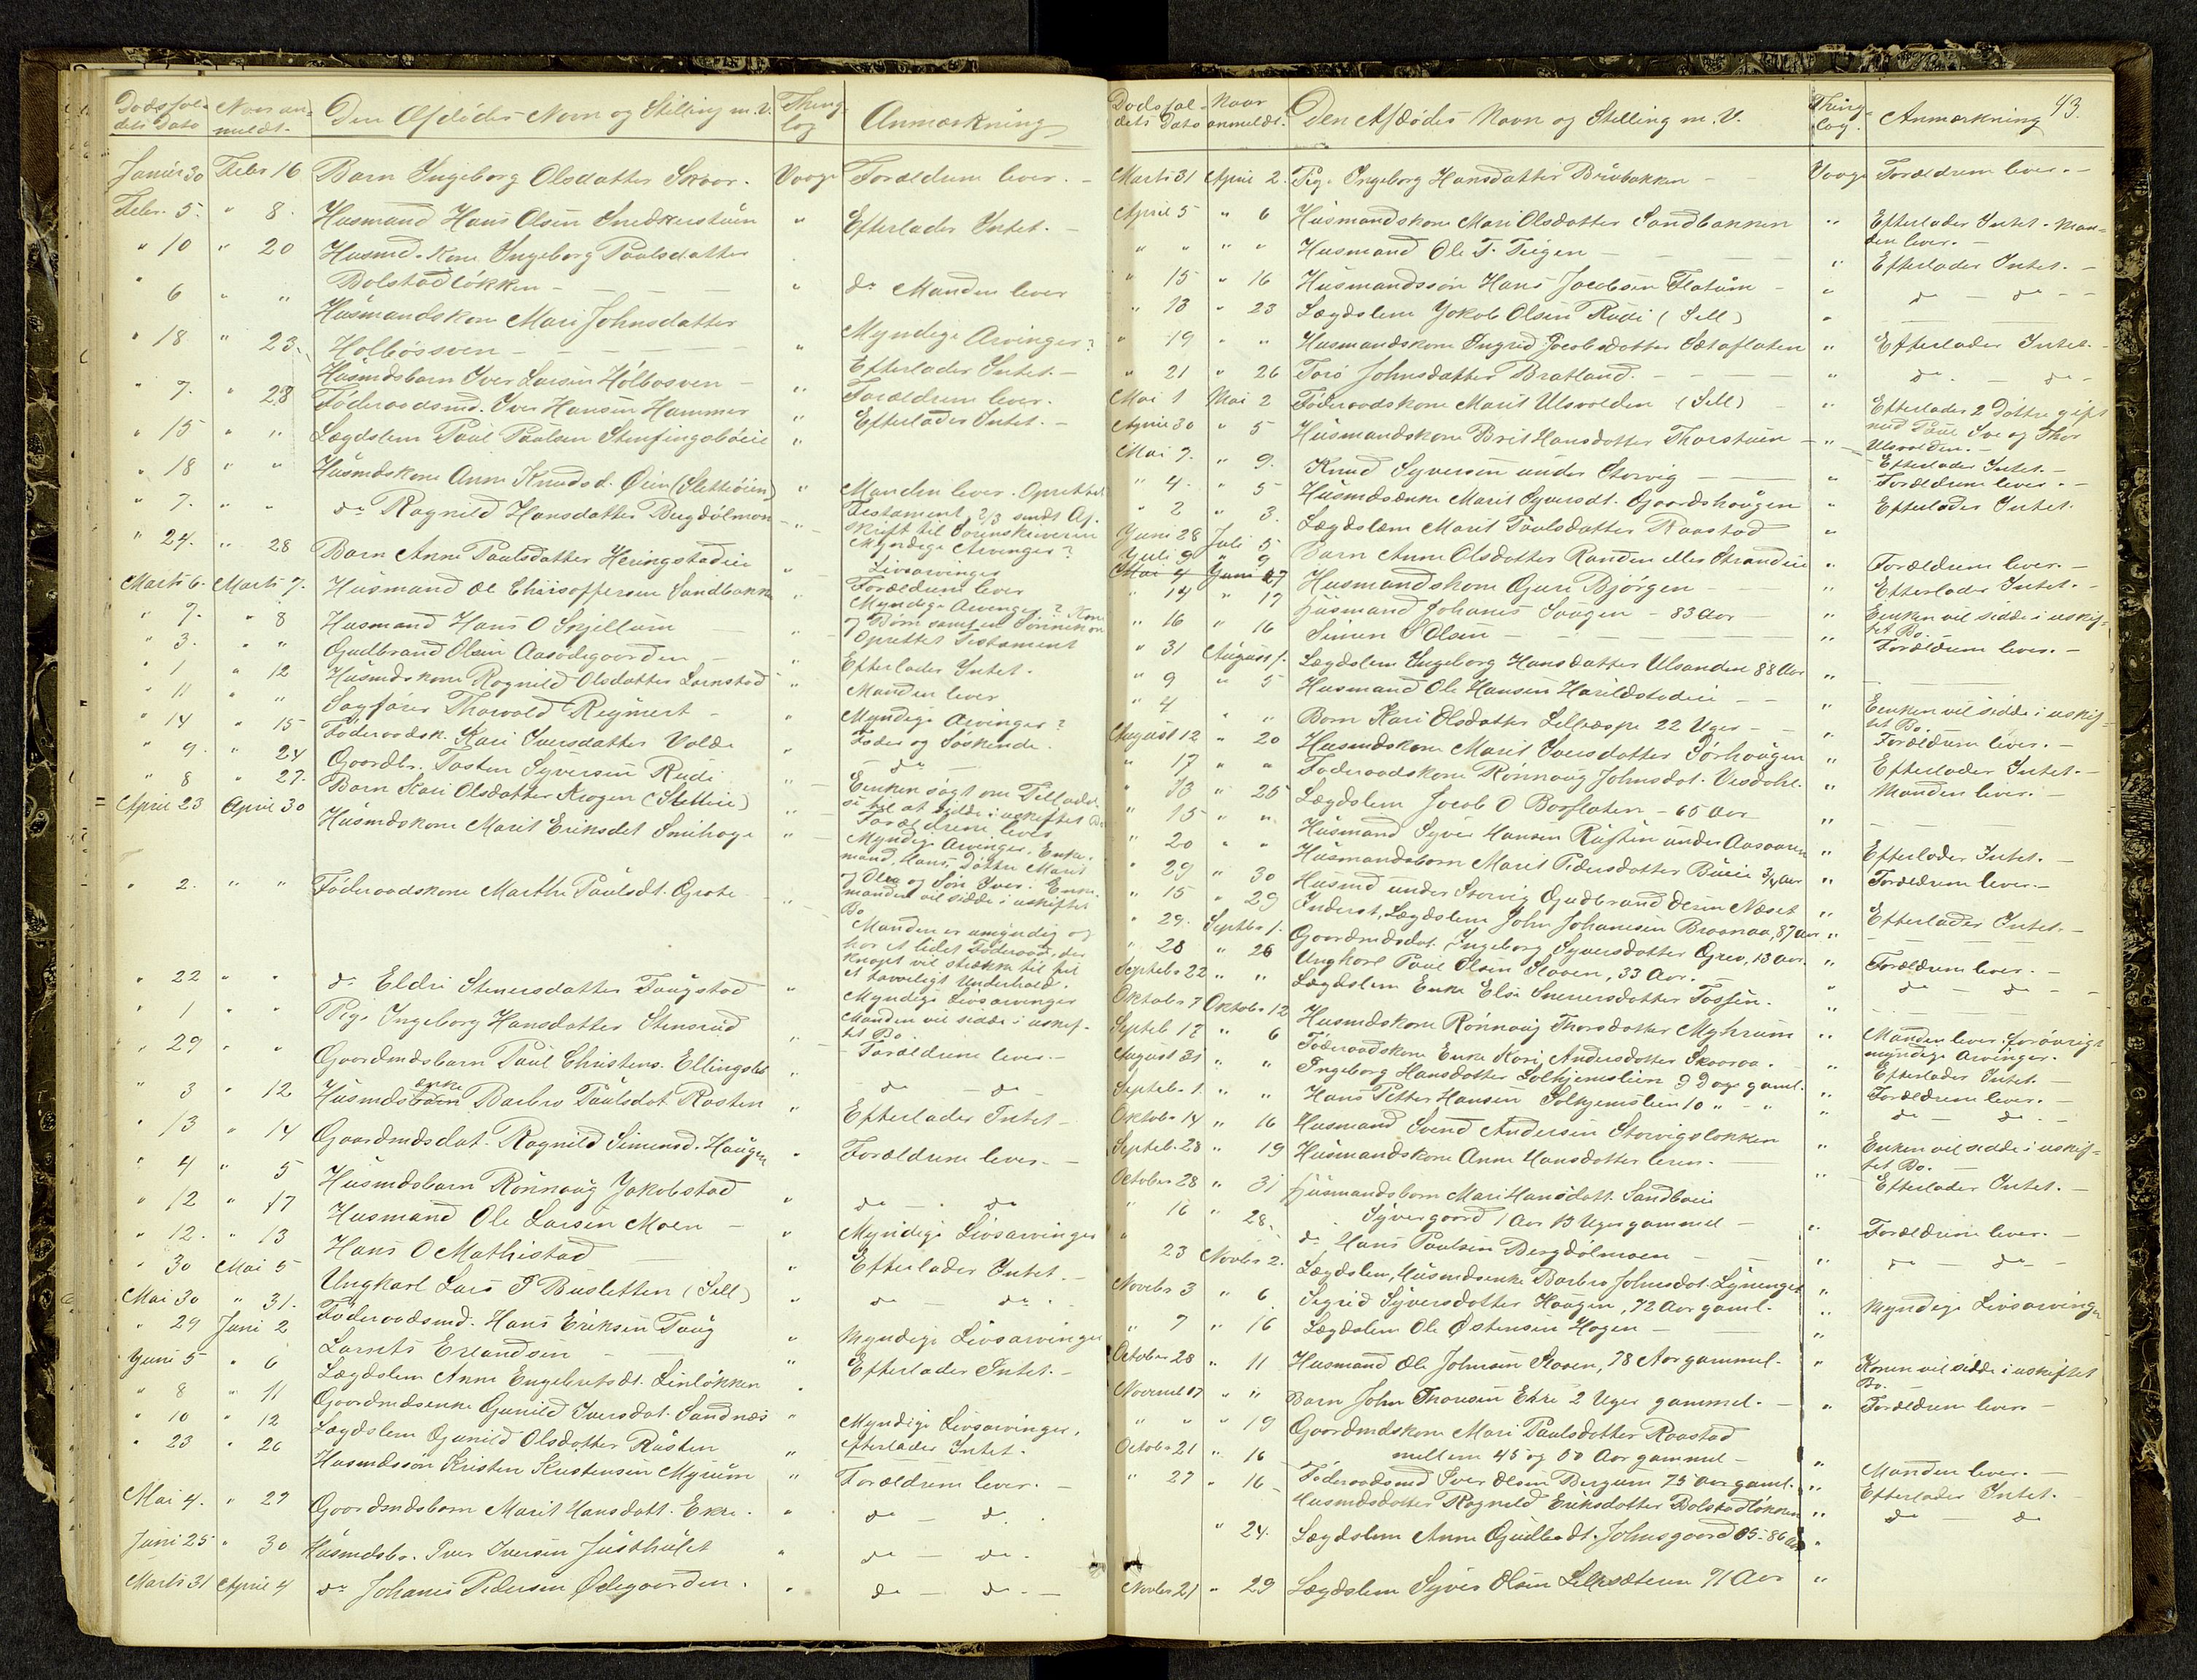 Dødsfal- Naar an- Den Afdødes Navn og Stilling m. V. Thing- Anmærkning
dets Dato meldt. lag
Januar 30 Febr 16 Barn Ingeborg Olsdatter Skaar. Vaage Forældrene lever. -
Febr. 5. " 8. Husmand Hans Olsen Snedkerstuen " Efterlader Intet. -
" 10 " 20 Husmd. Kone Ingeborg Paulsdatter
Bolstadløkken - " do Manden lever
" 6 " " Husmandskone Mari Johnsdatter
Holbøsveen - " Myndige Arvinger?
" 18 " 23. Husmdsbarn Iver Larsen Holbosven - " Efterlader Intet. -
" 7. " 28 Föderaadsmd. Iver Hansen Hammer " Forældrene lever.
" 15 " " Lægdslem Paul Paulsen Stenfingsbøeie " Efterlader Intet. -
" 18 " " Husmdskone Anne Knudsd. Øien (Sletteøien) " Manden lever. Oprettet
" 7. " " do Ragnild Hansdatter Bugdølmon " Testament 2/3 sendt Af-
skrift til Sorenskriveren
" 24. " 28 Barn Anne Paulsdatter Heringstadeie " Myndige Arvinger?
Livsarvinger
Marts 6. Marts 7. Husmand Ol Christoffersen Sandbakke " Forældrene lever
" 7. " 8 Husmand Hans O Skjellum " Myndige Arvinger? Kone
og Børn samt en Sønnekone
" 3. " " Gudbrand Olsen Aasødegaarden - " Oprettet Testament
" 1 " 12 Husmdskone Ragnild Olsdatter Larnstad " Efterlader Intet.
" 11 " " Sagfører Thorvald Regmert - " Manden lever
" 14 " 15 Føderaadsk. Kari Iversdatter Volde " Myndige Arvinger?
" 9. " 24 Gaardbr. Tosten Syversen Rudi " Fader og Søskende.
" 8 " 27. Barn Kari Olsdatter Krogen (Sletteie) " do
April 23 April 30 Husmdskone Marit Eriksdet Smihage " Enken søgt om Tilladel-
se til at sidde i uskiftet Bo
Forældrene lever
" 2. " " Föderaadskone Marthe Paulsdt. Grote " Myndige Arvinger. Enke-
mand, Hans, Døttre Marit
og Olea og Søn Iver. Enke-
manden vil sidde i uskiftet
Bo
" 22 " " do Eldri Stenersdatter Faugstad " Manden er umyndig og
har et lidet Føderaad, der
knapt vil strække til til
et tarveligt Underhold.
" 1 " " Pige Ingeborg Hansdatter Stensrud " Myndige Livsarvinger
Manden vil sidde i uskif-
tet Bo
" 29 " " Gaardmdsbarn Paul Christens. Ellingsbø " - Forældrene lever. -
" 3 " 12 Husmdsenke Barbro Paulsdat Rosten " do - do
" 13 " 14 Gaardmdsdat. Ragnild Simensd. Haugen " Efterlader Intet -
" 4 " 5 Husmdsbarn Rønnaug Jakobstad " Forældrene lever. -
" 12 " 17 Husmand Ole Larsen Moen - " do - do
" 12. " 13 Hans O Mathistad " Myndige Livsarvinger
" 30 Mai 5 Ungkarl Lars P Busletten (Sell) " Efterlader Intet. -
Mai 30 " 31. Föderaadsmd. Hans Eriksen Faug " do - do.
" 29 Juni 2 Larnts Erlandsen - " Myndige Livsarvinger
Juni 5 " 6 Lægdslem Anne Engebretsdt. Linløkken " Efterlader Intet. -
" 8 " 11 Gaardmdsenke Gunild Iversdat. Sandnæs "
" 10 " 12 Lægdslem Gunild Olsdatter Rusten " Myndige Livsarvinger.
" 23 " 26 Husmdssøn Kristen Kristensen Myrum " Efterlader Intet.
Mai 4. " 27 Gaardmdsbarn Marit Hansdatt. Ekre. " Forældrene lever. -
Juni 25 " 30 Husmdsbr. Iver Iversen Justhulet " do - do.
Marts 31 April 4 do Johannes Pedersen Ødegaarden. " do - do -
43.
Dødsfal- Naar Den Afdødes Navn og Stilling m. V. Thing- Anmærkning
dets Dato anmeldt. lag.
Marts 31 April 2. Pige Ingeborg Hansdatter Brubakken - Vaage Forældrene lever. -
April 5 " 6 Husmandskone Mari Olsdatter Sandbakken " Efterlader Intet. Man-
den lever. -
" " " " Husmand Ole T. Teigen - " Efterlader Intet. -
" 15 " 16 Husmandssøn Hans Jacobsen Flatum - " do - do -
" 13 " 23 Lægdslem Jakob Olsen Rudi (Sell) "
" 19 " " Husmandskone Ingrid Jacobsdatter Sætaflaten " Efterlader Intet. -
" 21 " 26 Toro Johnsdatter Bratland. - " do. - do -
Mai 1 Mai 2 Föderaadskone Marit Ulsvolden (Sell) - " Efterlader 2 Døttre gift
med Paul Sve og Thor
Ulsvolden. -
April 30 " 5 Husmandskone Brit Hansdatter Thorstuen - " Efterlader Intet. -
Mai 7. " 9. Knud Syversen under Storvig - " Forældrene lever. -
" 4. " 5 Husmdsenke Marit Syversdt. Gaardshaugen " Efterlader Intet.
" 2 " 3. Lægdslem Marit Paulsdatter Raastad "
Juni 28 Juli 5 Barn Anne Olsdatter Randen eller Strandeie " Forældrene lever. -
Juli 9 " 9
Mai 4 Juni 27 Husmandskone Guri Bjørgen - " Efterlader Intet. -
" 14 " 17 Husmand Johanes Saugen - 83 Aar " Enken vil sidde i uskif-
tet Bo.
" 16 " 16 Simen S Olsen - " Forældrene lever. -
" 31 August 1. Lægdslem Ingeborg Hansdatter Ulsanden 88 Aar "
" 9 " 5 Husmand Ole Hansen Harildstadeie - " Enken vil sidde i uskif-
tet Bo.
" 4 " " Barn Kari Olsdatter Lillæspe 22 Uger - " Forældrene lever. -
August 12 " 20 Husmdskone Marit Iversdatter Sørhaugen " Efterlader Intet. -
" 17 " " Føderaadskone Rønnaug Johnsdat. Vesdahl. " Manden lever. -
" 13 " 25 Lægdslem Jacob O Borflaten - 65 Aar "
" 15 " " Husmand Syver Hansen Rusten under Aasaaren " Efterlader Intet. -
" 20 " " Husmandsbarn Marit Pedersdatter Bueie 3/4 Aar " Forældrene lever. -
" 29 " 30 Husmd under Storvig Gudbrand Olsen Næset " Efterlader Intet. -
" 15 " 29 Inderst, Lægdslem John Johansen Braanaa, 87 Aar "
" 29. Septbr 1. Gaardmdsdat. Ingeborg Syversdatter Grev, 13 Aar. " Forældrene lever. -
" 28 " 26 Ungkarl Paul Olsen Slaaen, 33 Aar. " do - do -
Septebr 22 " " Lægdslem Enke Else Sneversdatter Fossen. "
Oktobr 7 Oktobr 12 Husmdskone Rønnaug Thorsdatter Myhrum " Manden lever. forøvrigt
myndige Arvinger.
Septeb 17 " 6 Føderaadskone Enke Kari Andersdatter Skaaraa. " Efterlader Intet. -
August 31 " " Ingeborg Hansdatter Solhjemslien 9 Dage gaml. " Forældrene lever. -
Septebr 1. " " Hans Petter Hansen Solhjemslien 10 " - " " do - do -
Oktobr 14 " 16 Husmand Svend Andersen Storvigsløkken " Enken vil sidde i uskif-
tet Bo. -
Septebr. 28 " 19 Husmandskone Anne Hansdatter - " Efterlader Intet. -
October 28 " 31 Husmandsbarn Mari Hansdatt. Sandboeie
Syvergaard 1 Aar 13 Uger gammel - " Forældrene lever. -
" 16 " 28. do Hans Paulsen Bergdølmoen - " do - do -
" 23 Novbr 2. Lægdslem, Husmdsenke Barbro Johnsdat. Lyenget "
Novebr 3 " 6 Sigrid Syversdatter Haugen, 72 Aar gaml. " Myndige Livsarvinger
" 7 " 16 Lægdslem Ole Østensen Hagen - "
October 28 " 11 Husmand Ole Johnsen Slaaen, 78 Aar gammel. " Konen vil sidde i uskiftet
Bo.
Novemb 17 " " Barn John Thoresen Ekre 2 Uger gammel. - " Forældrene lever. -
" " " 19 Gaardmdskone Mari Paulsdatter Raastad
mellem 45 og 50 Aar gammel - " Manden lever. -
Octobr 21 " 16 Føderaadsmd Iver Olsen Bergum 75 Aar gaml. " Efterlader Intet. -
" 27 " 16 Husmdsdatter Ragnild Eriksdatter Bolstadløkken " do - do
" 24. Lægdslem Anne Gudbrdt. Johnsgaard 85-86 Aar "
Novbr 21 " 29 Lægdslem Syver Olsen Lillesæteren 71 Aar "